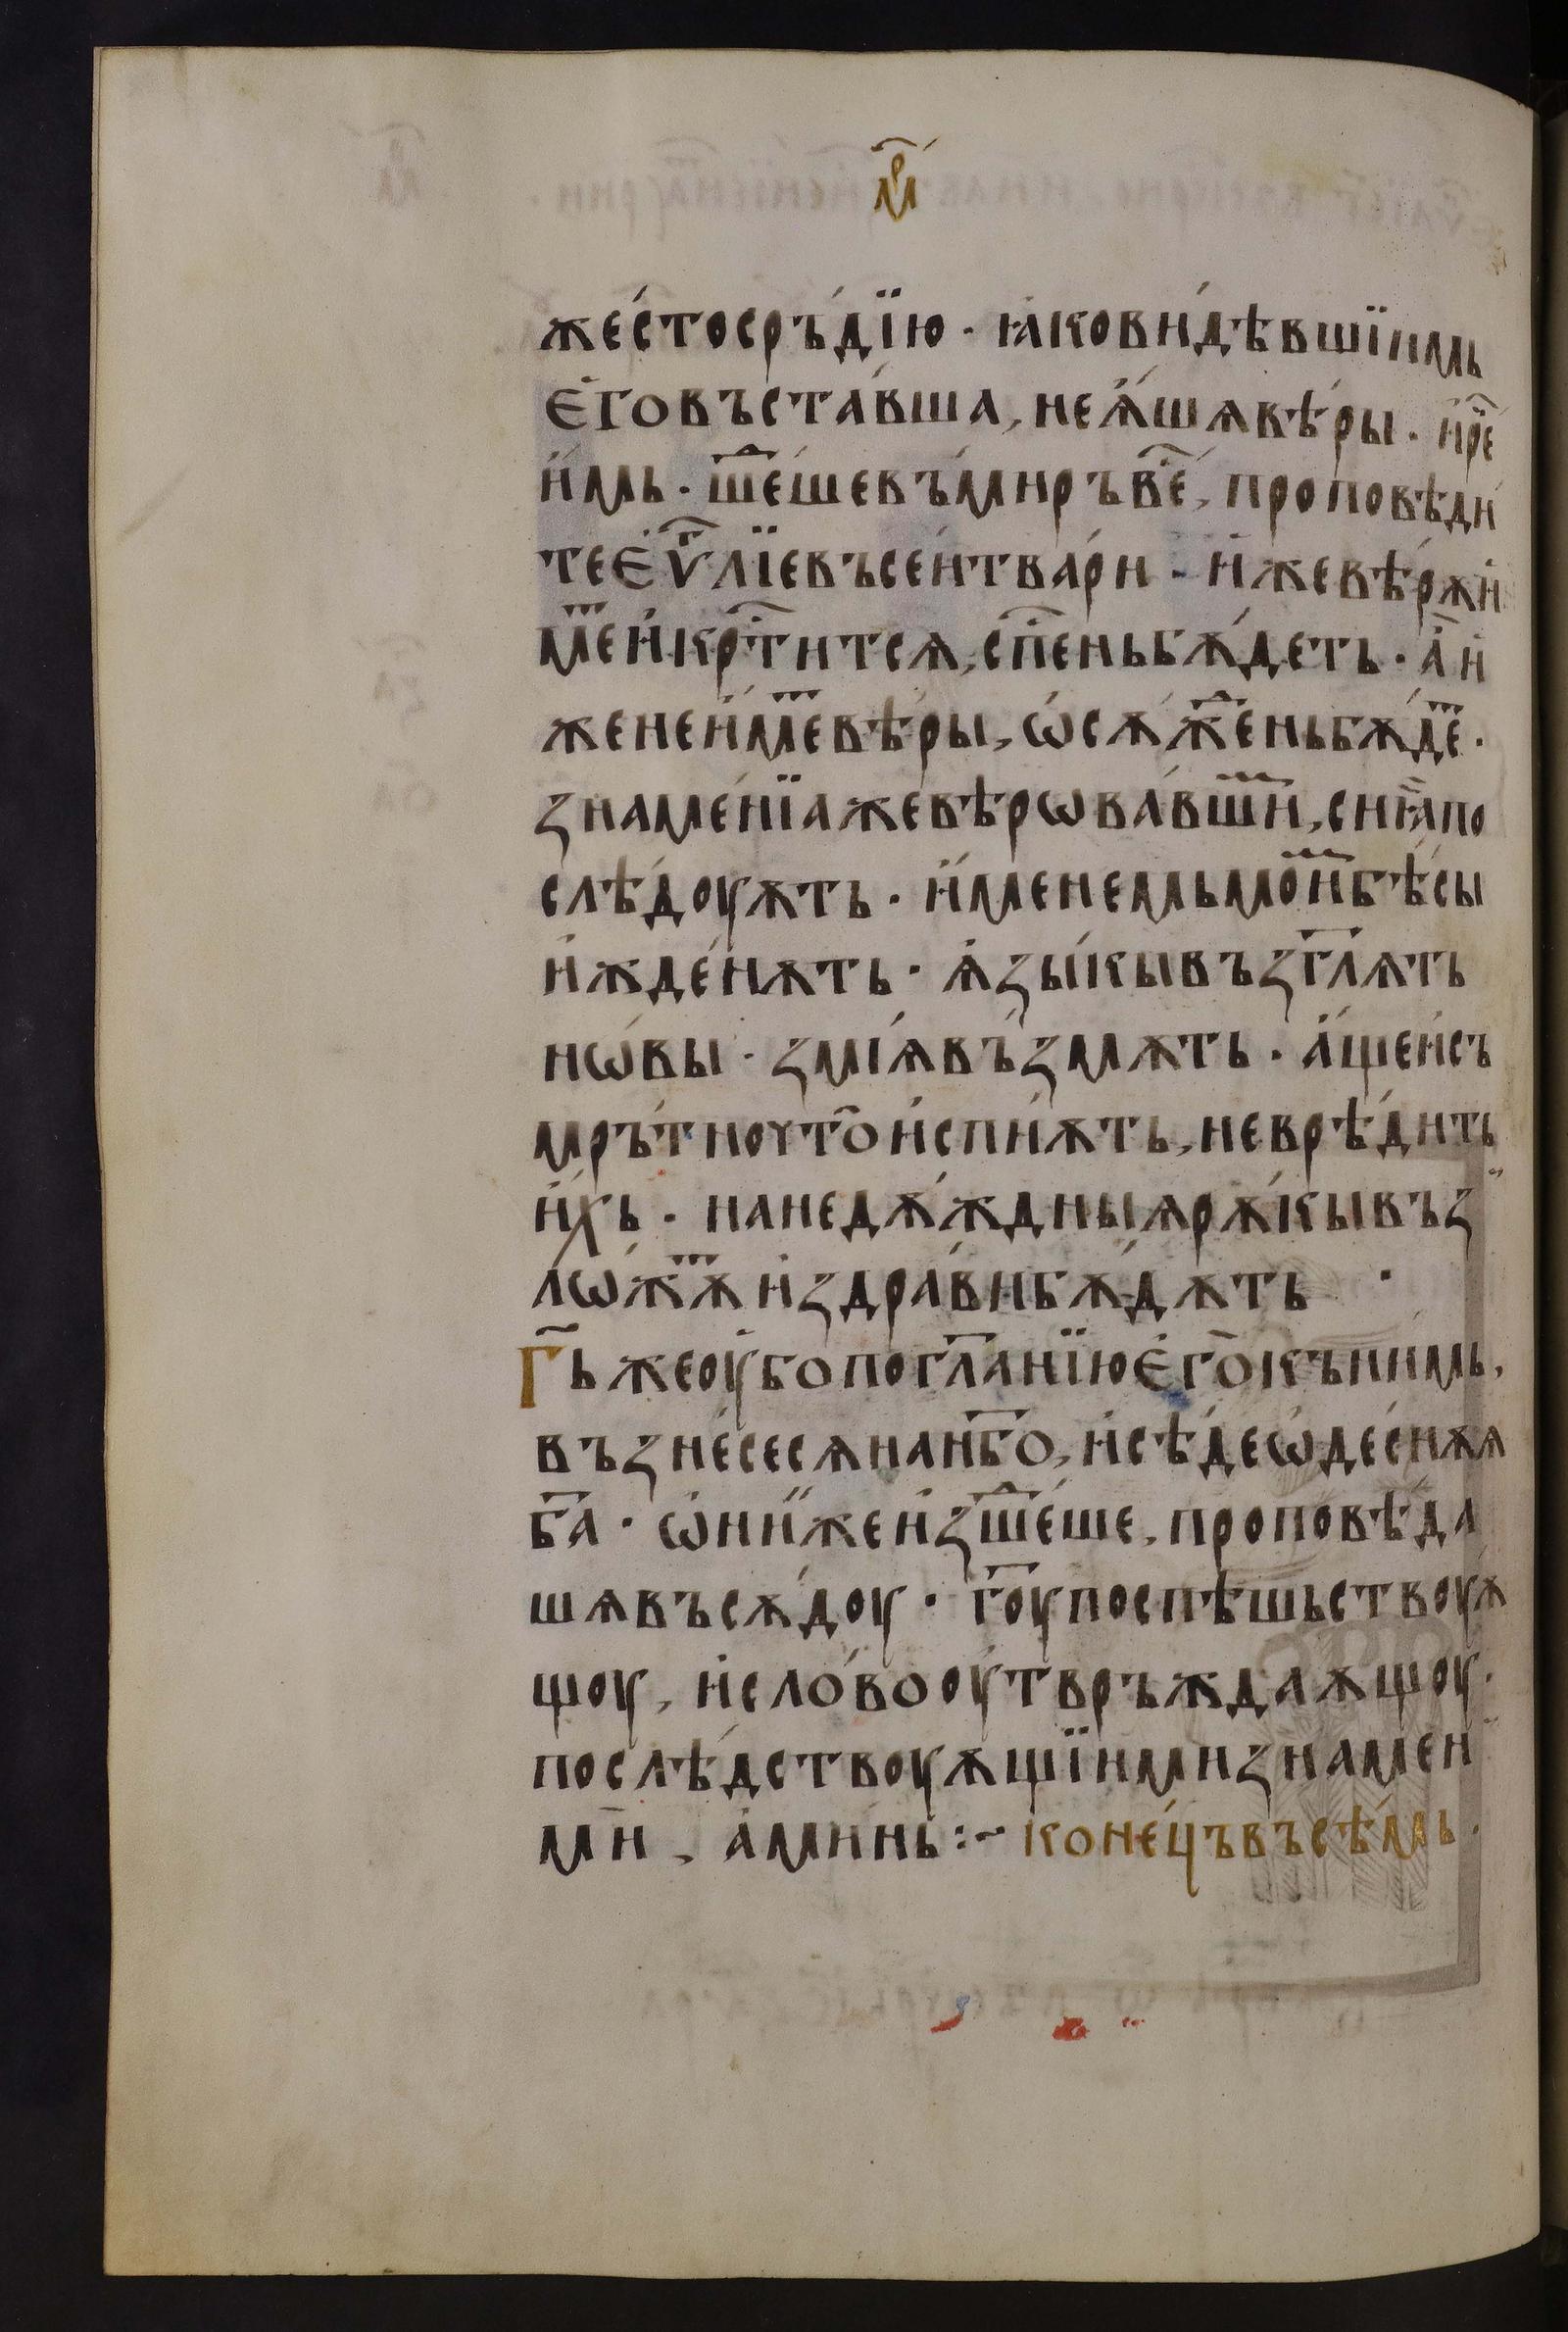 м҃р
же́стосръ́дїю · ꙗ҆кови́дѣвшїимь
є҆говъста́вша, неꙗ҆́шѧвѣ́ры · и҆рⷱ҇е
и҆̀мь · шеⷣ́шевъми́ръвⷭ҇е́, проповѣди́
тееѵⷢ҇лїевъсе́итва́ри · и҆́жевѣ́рѫи҆
меⷮи҆крⷭ҇титсѧ, сп҃сеньбѫ́деть · а҆̀и҆
женеи҆́меⷮвѣ́ры, ѡ҆сѫжⷣе́ньбѫ́деⷮ ·
знаме́нїажевѣрѡва́вшиⷨ, сиꙗ҆̀по
слѣ́доуѫть · и҆́менемьмои҆́ⷨбѣ́сы
и҆жде́нѫть · ѧ҆зы́кывъзгл҃ѭть
нѡ́вы · змі́ѧвъ́змѫть · а҆́щеи҆съ
мръ́тноуто̀и҆спи́ѫть, неврѣ́дить
и҆́хь · нанедѫ́ждныѧрѫ́кывъз
лѡ́жѫⷮ и҆здра́вибѫ́дѫть ·
Гь҃жеоу҆бопогл҃анїює҆го̀къни́мь,
възне́сесѧнан҃бо, и҆сѣ́деѡ҆де́снѫѧ
б҃а · ѡ҆ни́жеи҆зшеⷣ́ше, проповѣ́да
шѧвъсѫ́доу · г҃оупоспѣшьствоуѫ́
щоу, и҆сло́вооу҆тврьжда́ѫщоу ·
послѣ́дствоуѫщїимизна́мен
мѝ, а҆ми́нь :~ коне́цъвъсѣ́мь ·